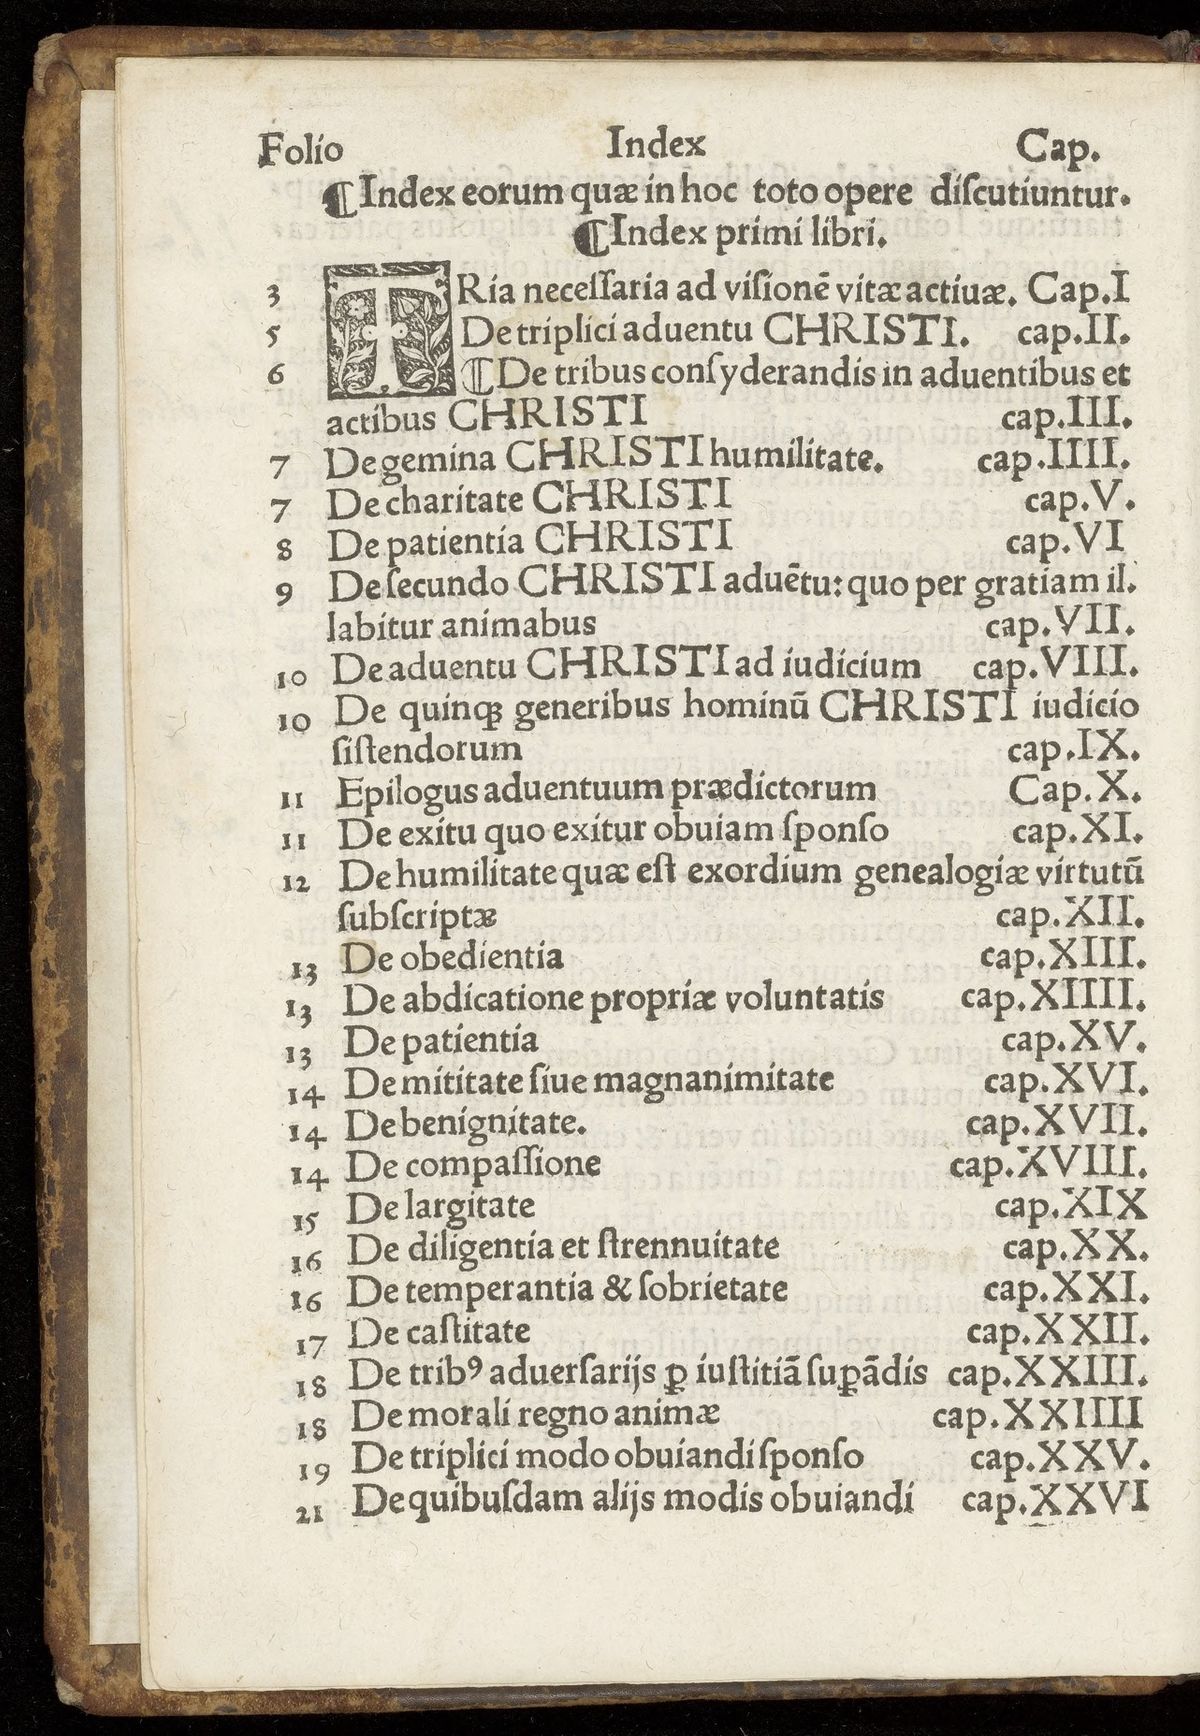 Folio Index Cap.
¶Index eorum quæ in hoc toto opere diſcutiuntur.
¶Index primi libri.
3 TRia neceſſaria ad viſionē vitæ actiuæ. Cap.I
5 De triplici aduentu CHRISTI. cap.II.
6 ¶De tribus conſyderandis in aduentibus et
actibus CHRISTI cap.III.
7 De gemina CHRISTI humilitate. cap.IIII.
7 De charitate CHRISTI cap.V.
8 De patientia CHRISTI cap.VI
9 De ſecundo CHRISTI aduētu: quo per gratiam il.
labitur animabus cap.VII.
10 De aduentu CHRISTI ad iudicium cap.VIII.
10 De quinqꝫ generibus hominū CHRISTI iudicio
ſiſtendorum cap.IX.
11 Epilogus aduentuum prædictorum Cap.X.
11 De exitu quo exitur obuiam ſponſo cap.XI.
12 De humilitate quæ eſt exordium genealogiæ virtutū
ſubſcriptæ cap.XII.
13 De obedientia cap.XIII.
13 De abdicatione propriæ voluntatis cap.XIIII.
13 De patientia cap.XV.
14 De mititate ſiue magnanimitate cap.XVI.
14 De benignitate. cap.XVII.
14 De compaſſione cap.XVIII.
15 De largitate cap.XIX
16 De diligentia et ſtrennuitate cap.XX.
16 De temperantia & ſobrietate cap.XXI.
17 De caſtitate cap.XXII.
18 De tribꝰ aduerſarijs ꝑ iuſtitiā ſuꝑādis cap.XXIII.
18 De morali regno animæ cap.XXIIII
19 De triplici modo obuiandi ſponſo cap.XXV.
21 De quibuſdam alijs modis obuiandi cap.XXVI